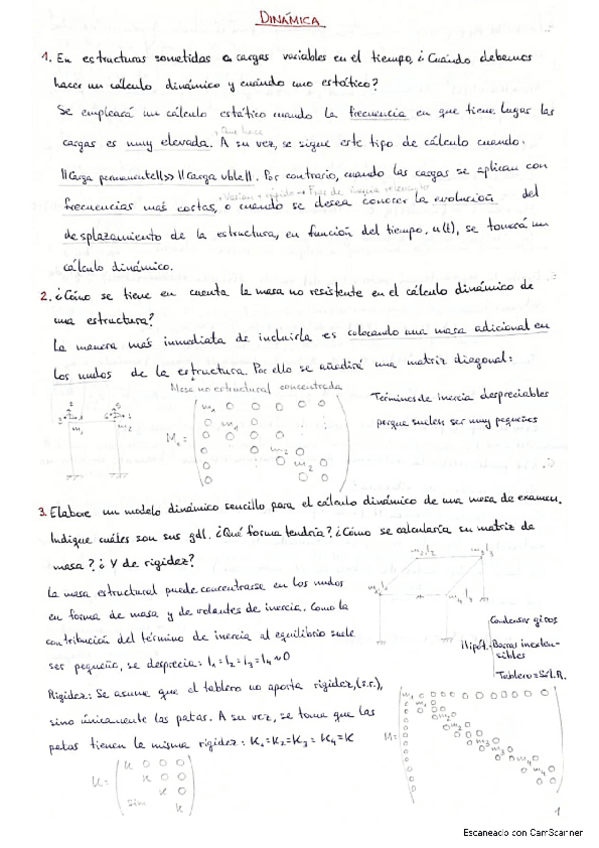 DINÁMICA
1. En estructuras sometidas a cargas variables en el tiempo, ¿Cuándo debemos
hacer un cálculo dinámico y cuándo uno estático?
Se empleará un cálculo estático cuando la frecuencia en que tiene lugar las
cargas es muy elevada. A su vez, se sigue este tipo de cálculo cuando.
||Carga permanente||>> ||Carga vble||. Por contrario, cuando las cargas se aplican con
frecuencias más cortas, o cuando se desea conocer la evolución del
desplazamiento de la estructura, en función del tiempo, u(t), se tomará un
cálculo dinámico.
2. ¿Cómo se tiene en cuenta la masa no resistente en el cálculo dinámico de
una estructura?
La manera más inmediata de incluirla es colocando una masa adicional en
los nudos de la estructura. Por ello se añadirá una matriz diagonal:
Masa no estructural concentrada
Términos de inercia despreciables
porque suelen ser muy pequeños
3. Elabore un modelo dinámico sencillo para el cálculo dinámico de una mesa de examen.
Indique cuáles son sus gdl. ¿Qué forma tendría? ¿Cómo se calcularía su matriz de
masa? ¿ Y de rigidez?
La masa estructural puede concentrarse en los nudos
en forma de masa y de volantes de inercia. Como la
contribución del término de inercia al equilibrio suele
ser pequeña, se desprecia: I₁=I₂=I₃=I₄≈0
Condensar giros
Hipót. Barras inexten-
sibles
Tablero = S.L.R.
Rigidez: Se asume que el tablero no aporta rigidez, (s.r.),
sino únicamente las patas. A su vez, se toma que las
patas tienen la misma rigidez: K₁=K₂=K₃=K₄=K
1
Escaneado con CamScanner